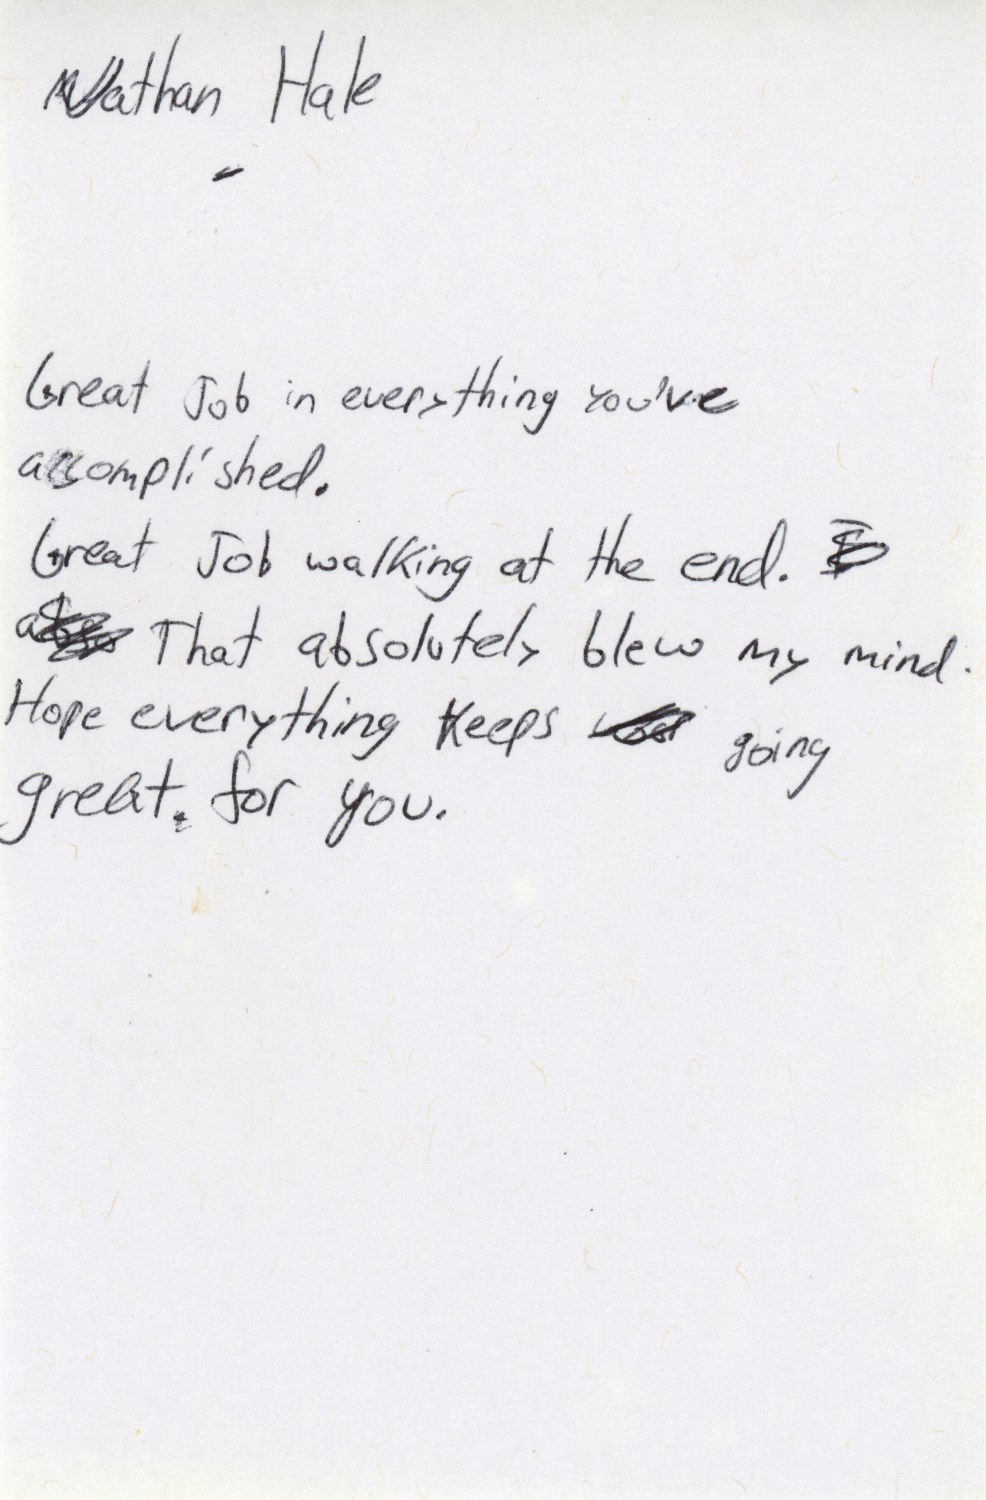 Nathan Hale
Great Job in everything you've
accomplished.
Great Job walking at the end.
That absolutely blew my mind.
Hope everything keeps going
great. for you.